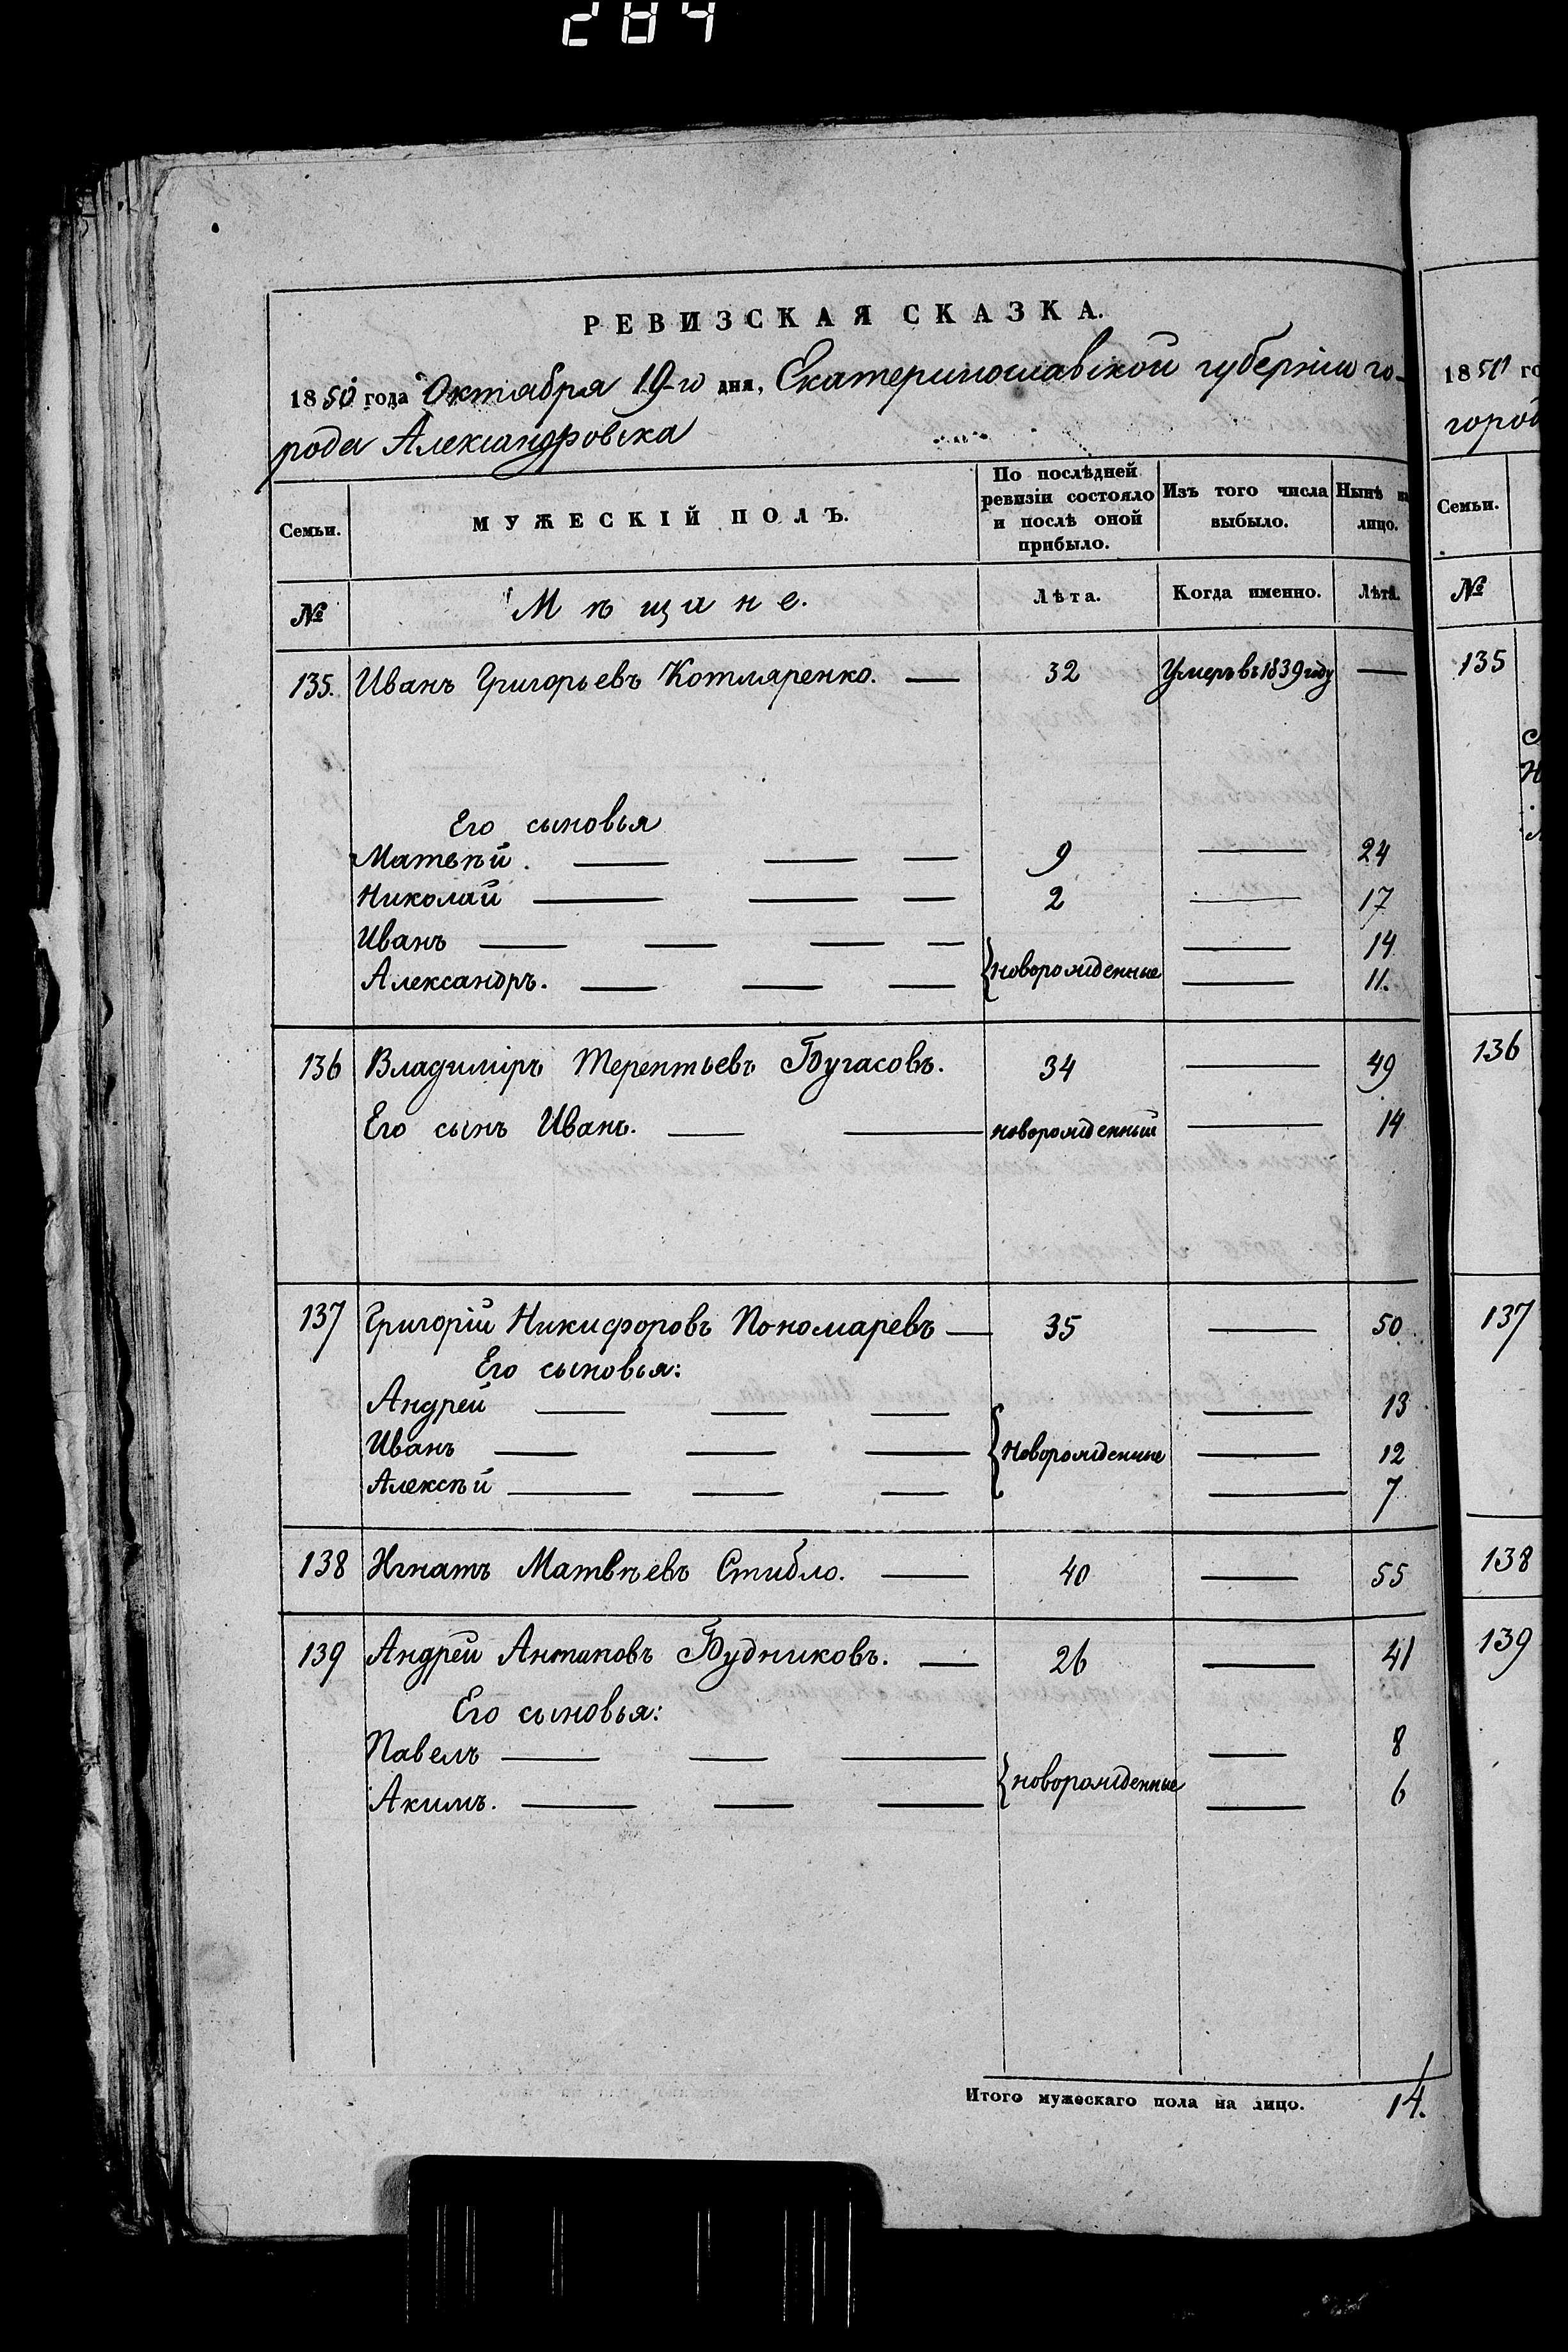 284
РЕВИЗСКАЯ СКАЗКА.
1850 года Октября 19-го дня, Екатеринославской губернiи го-
рода Александровска
Семьи. МУЖЕСКIЙ ПОЛЪ. По послѣдней ревизiи состояло и послѣ оной прибыло. Изъ того числа выбыло. Нынѣ на лицо.
№ Мѣщане. Лѣта. Когда именно. Лѣта.
135. Иванъ Григорьевъ Котляренко. — 32 Умеръ въ 1839 году —
Его сыновья
Матвѣй. — — — 9 — 24
Николай — — — 2 — 17
Иванъ — — — — новорожденные — 14
Александръ. — — — — 11.
136 Владимiръ Терентьевъ Бугасовъ. 34 — 49
Его сынъ Иванъ. — — новорожденный — 14
137 Григорiй Никифоровъ Пономаревъ — 35 — 50
Его сыновья:
Андрей — — — — 13
Иванъ — — — Новорожденные — 12
Алексѣй — — — — 7
138 Игнатъ Матвѣевъ Стибло. — 40 — 55
139 Андрей Антаповъ Будниковъ. — 26 — 41
Его сыновья:
Павелъ — — — — 8
Акимъ. — — — новорожденные — 6
Итого мужескаго пола на лицо. 14.
1850 го
город
Семьи.
№
135
136
137
138
139